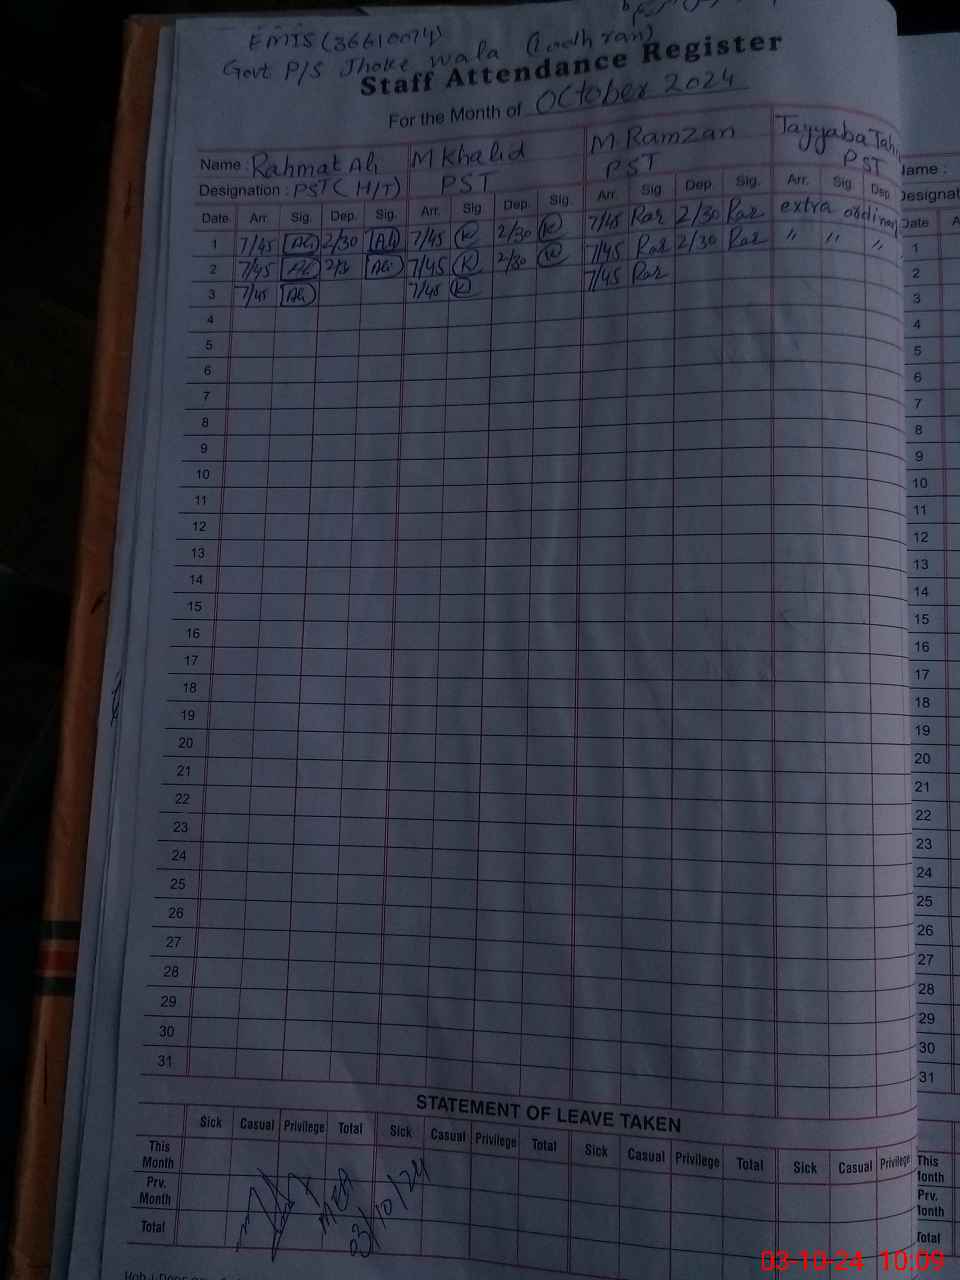 EMIS (36610074)
Govt P/S Jhoke Wala (Lodhran)
Staff Attendance Register
For the Month of October 2024
Name : Rahmat Ali M Khalid M Ramzan Tayyaba Tahi
Designation : PST (H/T) PST PST PST
Date Arr. Sig. Dep. Sig. Arr. Sig Dep. Sig. Arr. Sig Dep. Sig. Arr. Sig. Dep.
1 7/45 Ali 2/30 Ali 7/45 K 2/30 K 7/45 Raz 2/30 Raz extra ordinary
2 7/45 Ali 2/30 Ali 7/45 K 2/30 K 7/45 Raz 2/30 Raz " " "
3 7/45 Ali 7/45 K 7/45 Raz
4
5
6
7
8
9
10
11
12
13
14
15
16
17
18
19
20
21
22
23
24
25
26
27
28
29
30
31
STATEMENT OF LEAVE TAKEN
Sick Casual Privilege Total Sick Casual Privilege Total Sick Casual Privilege Total Sick Casual Privilege
This Month
Prv. Month
Total
MEA
03/10/24
Name :
Designat
Date A
1
2
3
4
5
6
7
8
9
10
11
12
13
14
15
16
17
18
19
20
21
22
23
24
25
26
27
28
29
30
31
This
Month
Prv.
Month
Total
03-10-24 10:09